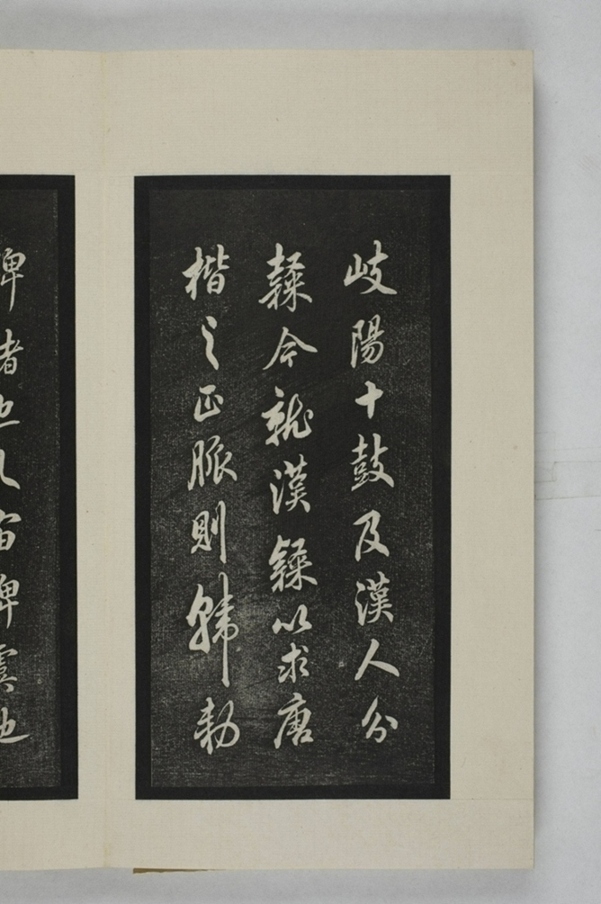 岐陽十鼓及漢人分
隸今就漢隸以求唐
楷之正脈則韓勑
碑褚也孔宙碑虞也